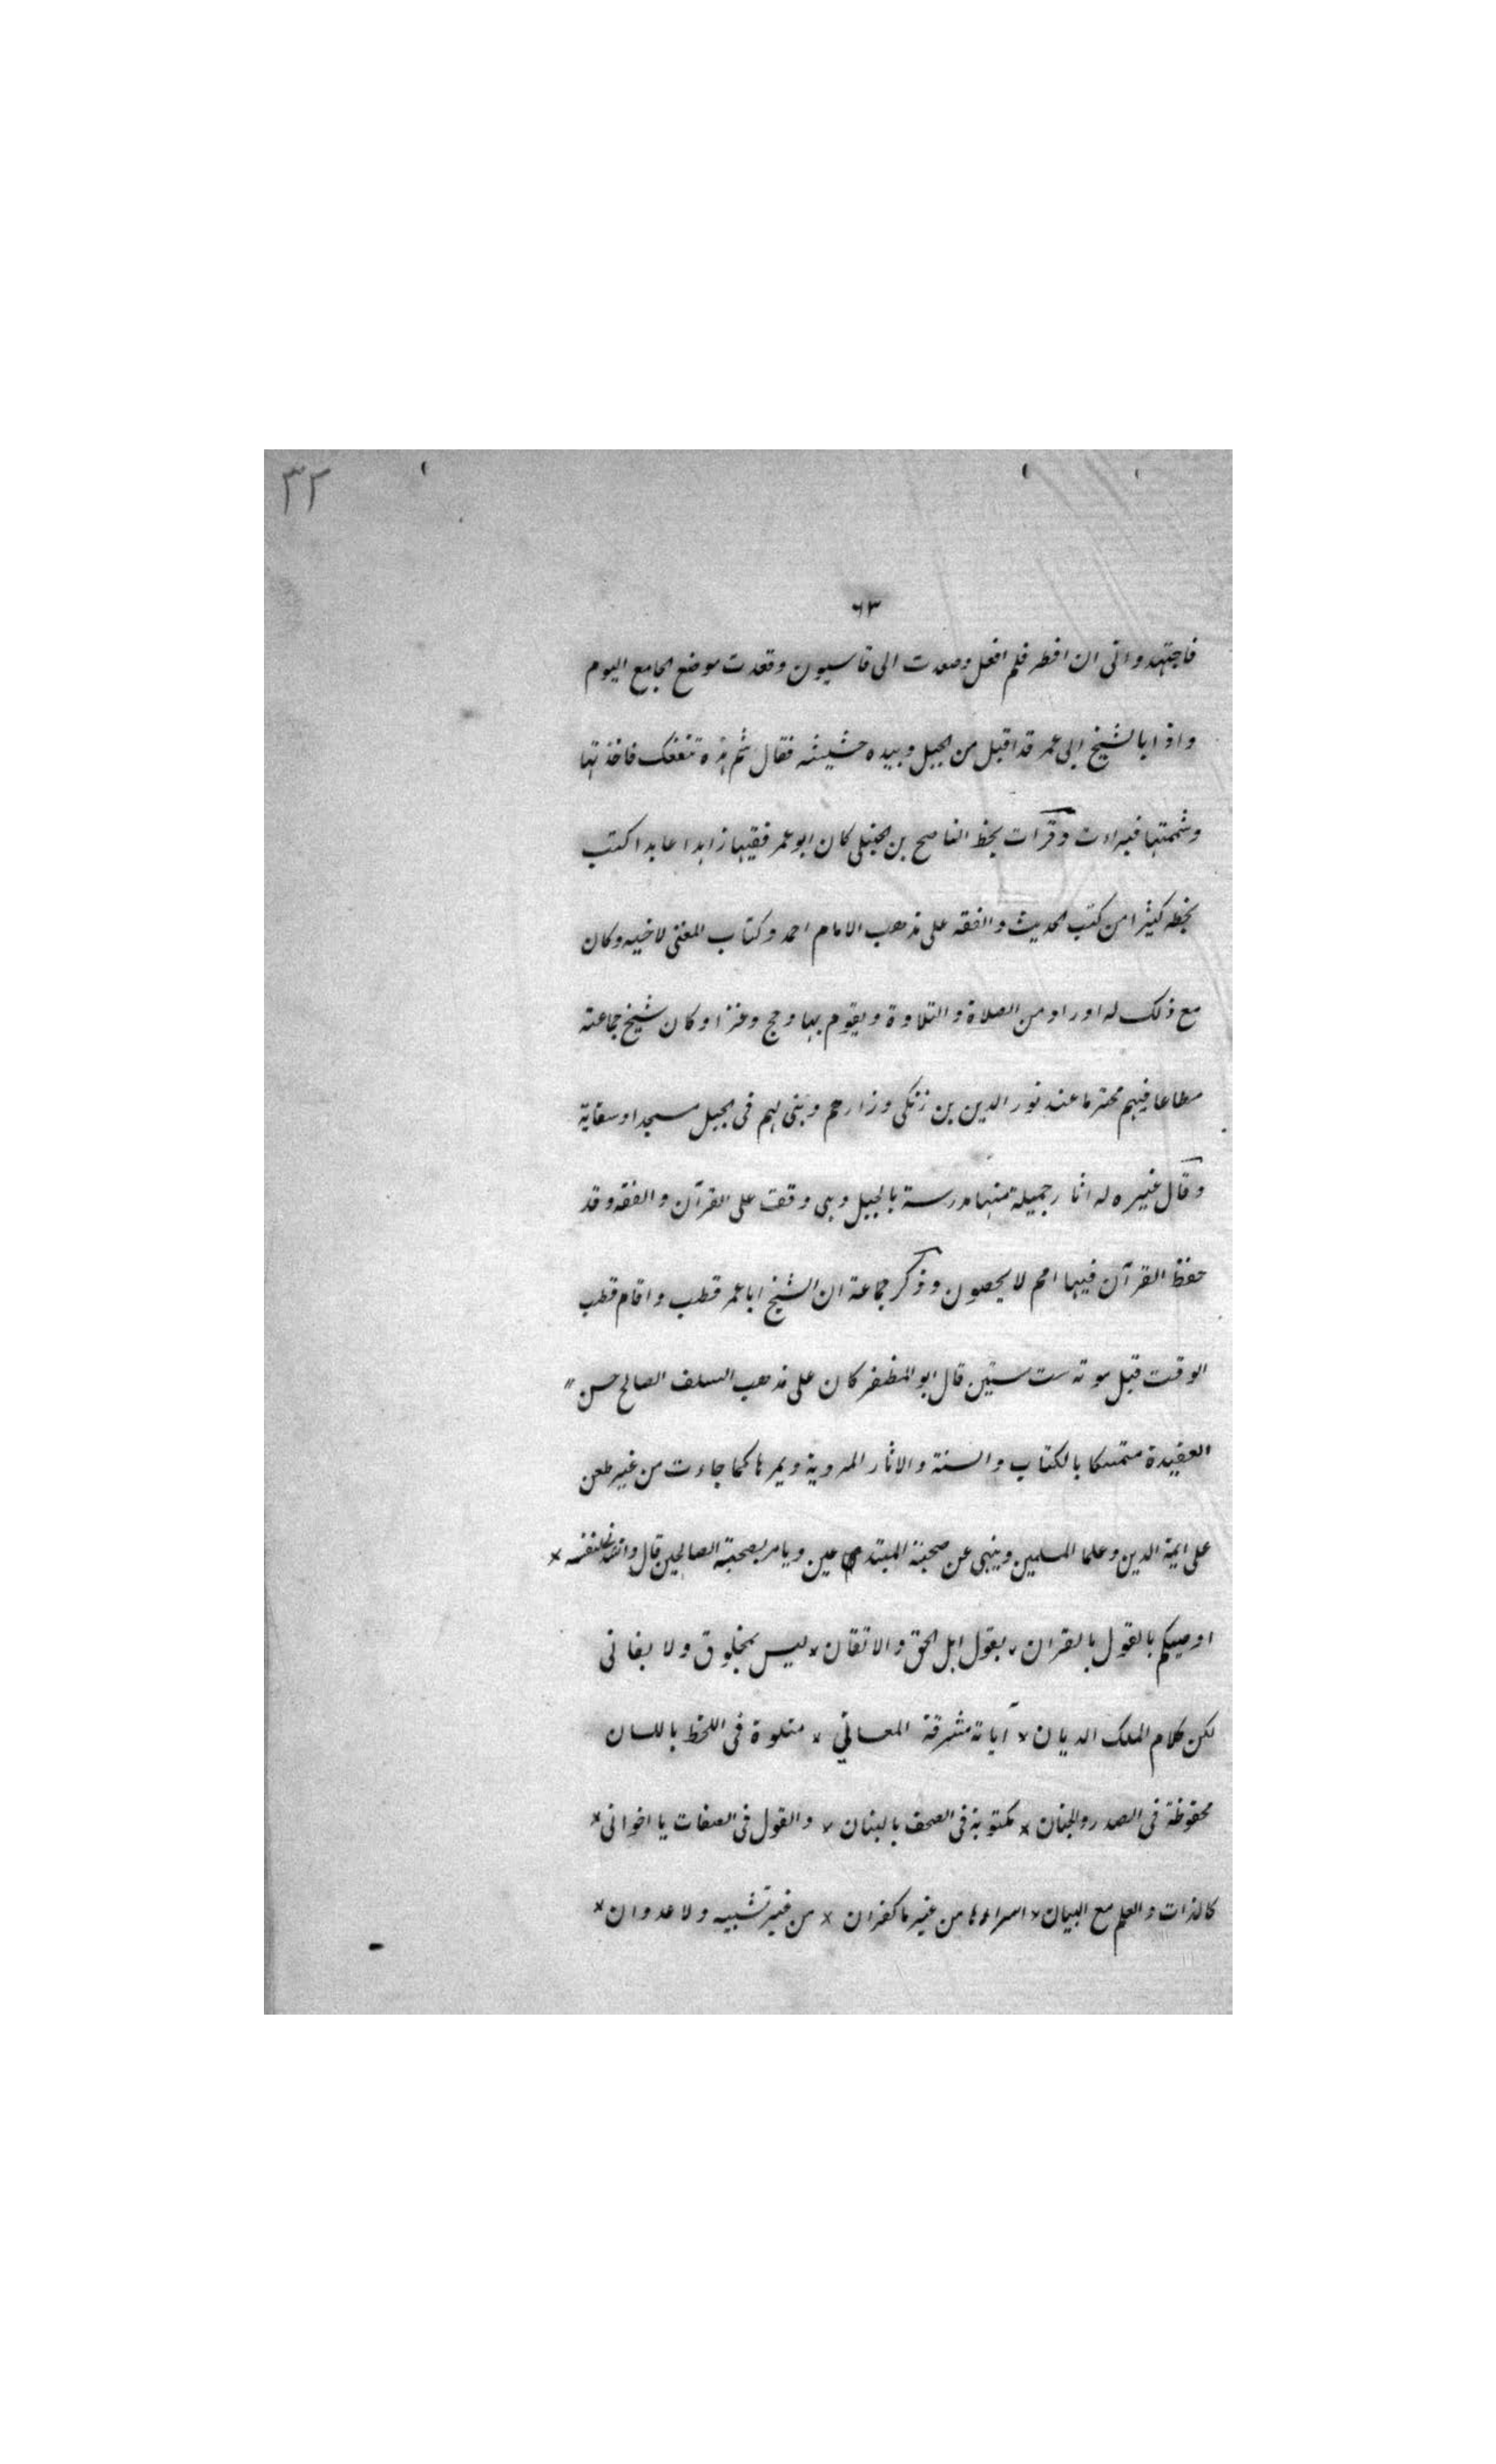 ٣٢
٦٣
فاجتهدوا فى ان افطر فلم افعل وصعدت الى قاسيون وقعدت موضع الجامع اليوم
واذا بالشيخ ابى عمر قد اقبل من الجبل وبيده حشيشه فقال شم هذه تنفعك فاخذتها
وشمتها فبراءت وقرات بخط الناصح بن الحنبلى كان ابو عمر فقيها زاهدا عابدا كتب
بخطه كثيرا من كتب الحديث والفقه على مذهب الامام احمد وكتاب المغنى لاخيه وكان
مع ذلك له اوراد من الصلاة والتلاوة ويقوم بها وحج وغزا وكان شيخ جماعته
مطاعا فيهم محترما عند نور الدين بن زنكى وزارهم وبنى لهم فى الجبل مسجدا وسقاية
وقال غيره له اثار جميلة منها مدرسة بالجبل وهى وقف على القرآن والفقه وقد
حفظ القرآن فيها امم لا يحصون وذكر جماعة ان الشيخ ابا عمر قطب واقام قطب
الوقت قبل موته ست سنين قال ابو المظفر كان على مذهب السلف الصالح حسن
العقيدة متمسكا بالكتاب والسنة والاثار المروية ويمرها كما جاءت من غير طعن
على ايمة الدين وعلما المسلمين وينهى عن صحبة المبتدعين ويامر بصحبة الصالحين قال وانشد لنفسه
اوصيكم بالقول بالقران × بقول اهل الحق والاتقان × ليس بمخلوق ولا بفانى
لكن كلام الملك الديان × آياته مشرقة المعاني × متلوة فى اللحظ باللسان
محفوظة فى الصدر والجنان × مكتوبة فى الصحف بالبنان × والقول فى الصفات يا اخوانى ×
كالذات والعلم مع البيان × امراءها من غير ما كفران × من غير تشبيه ولا عدوان ×